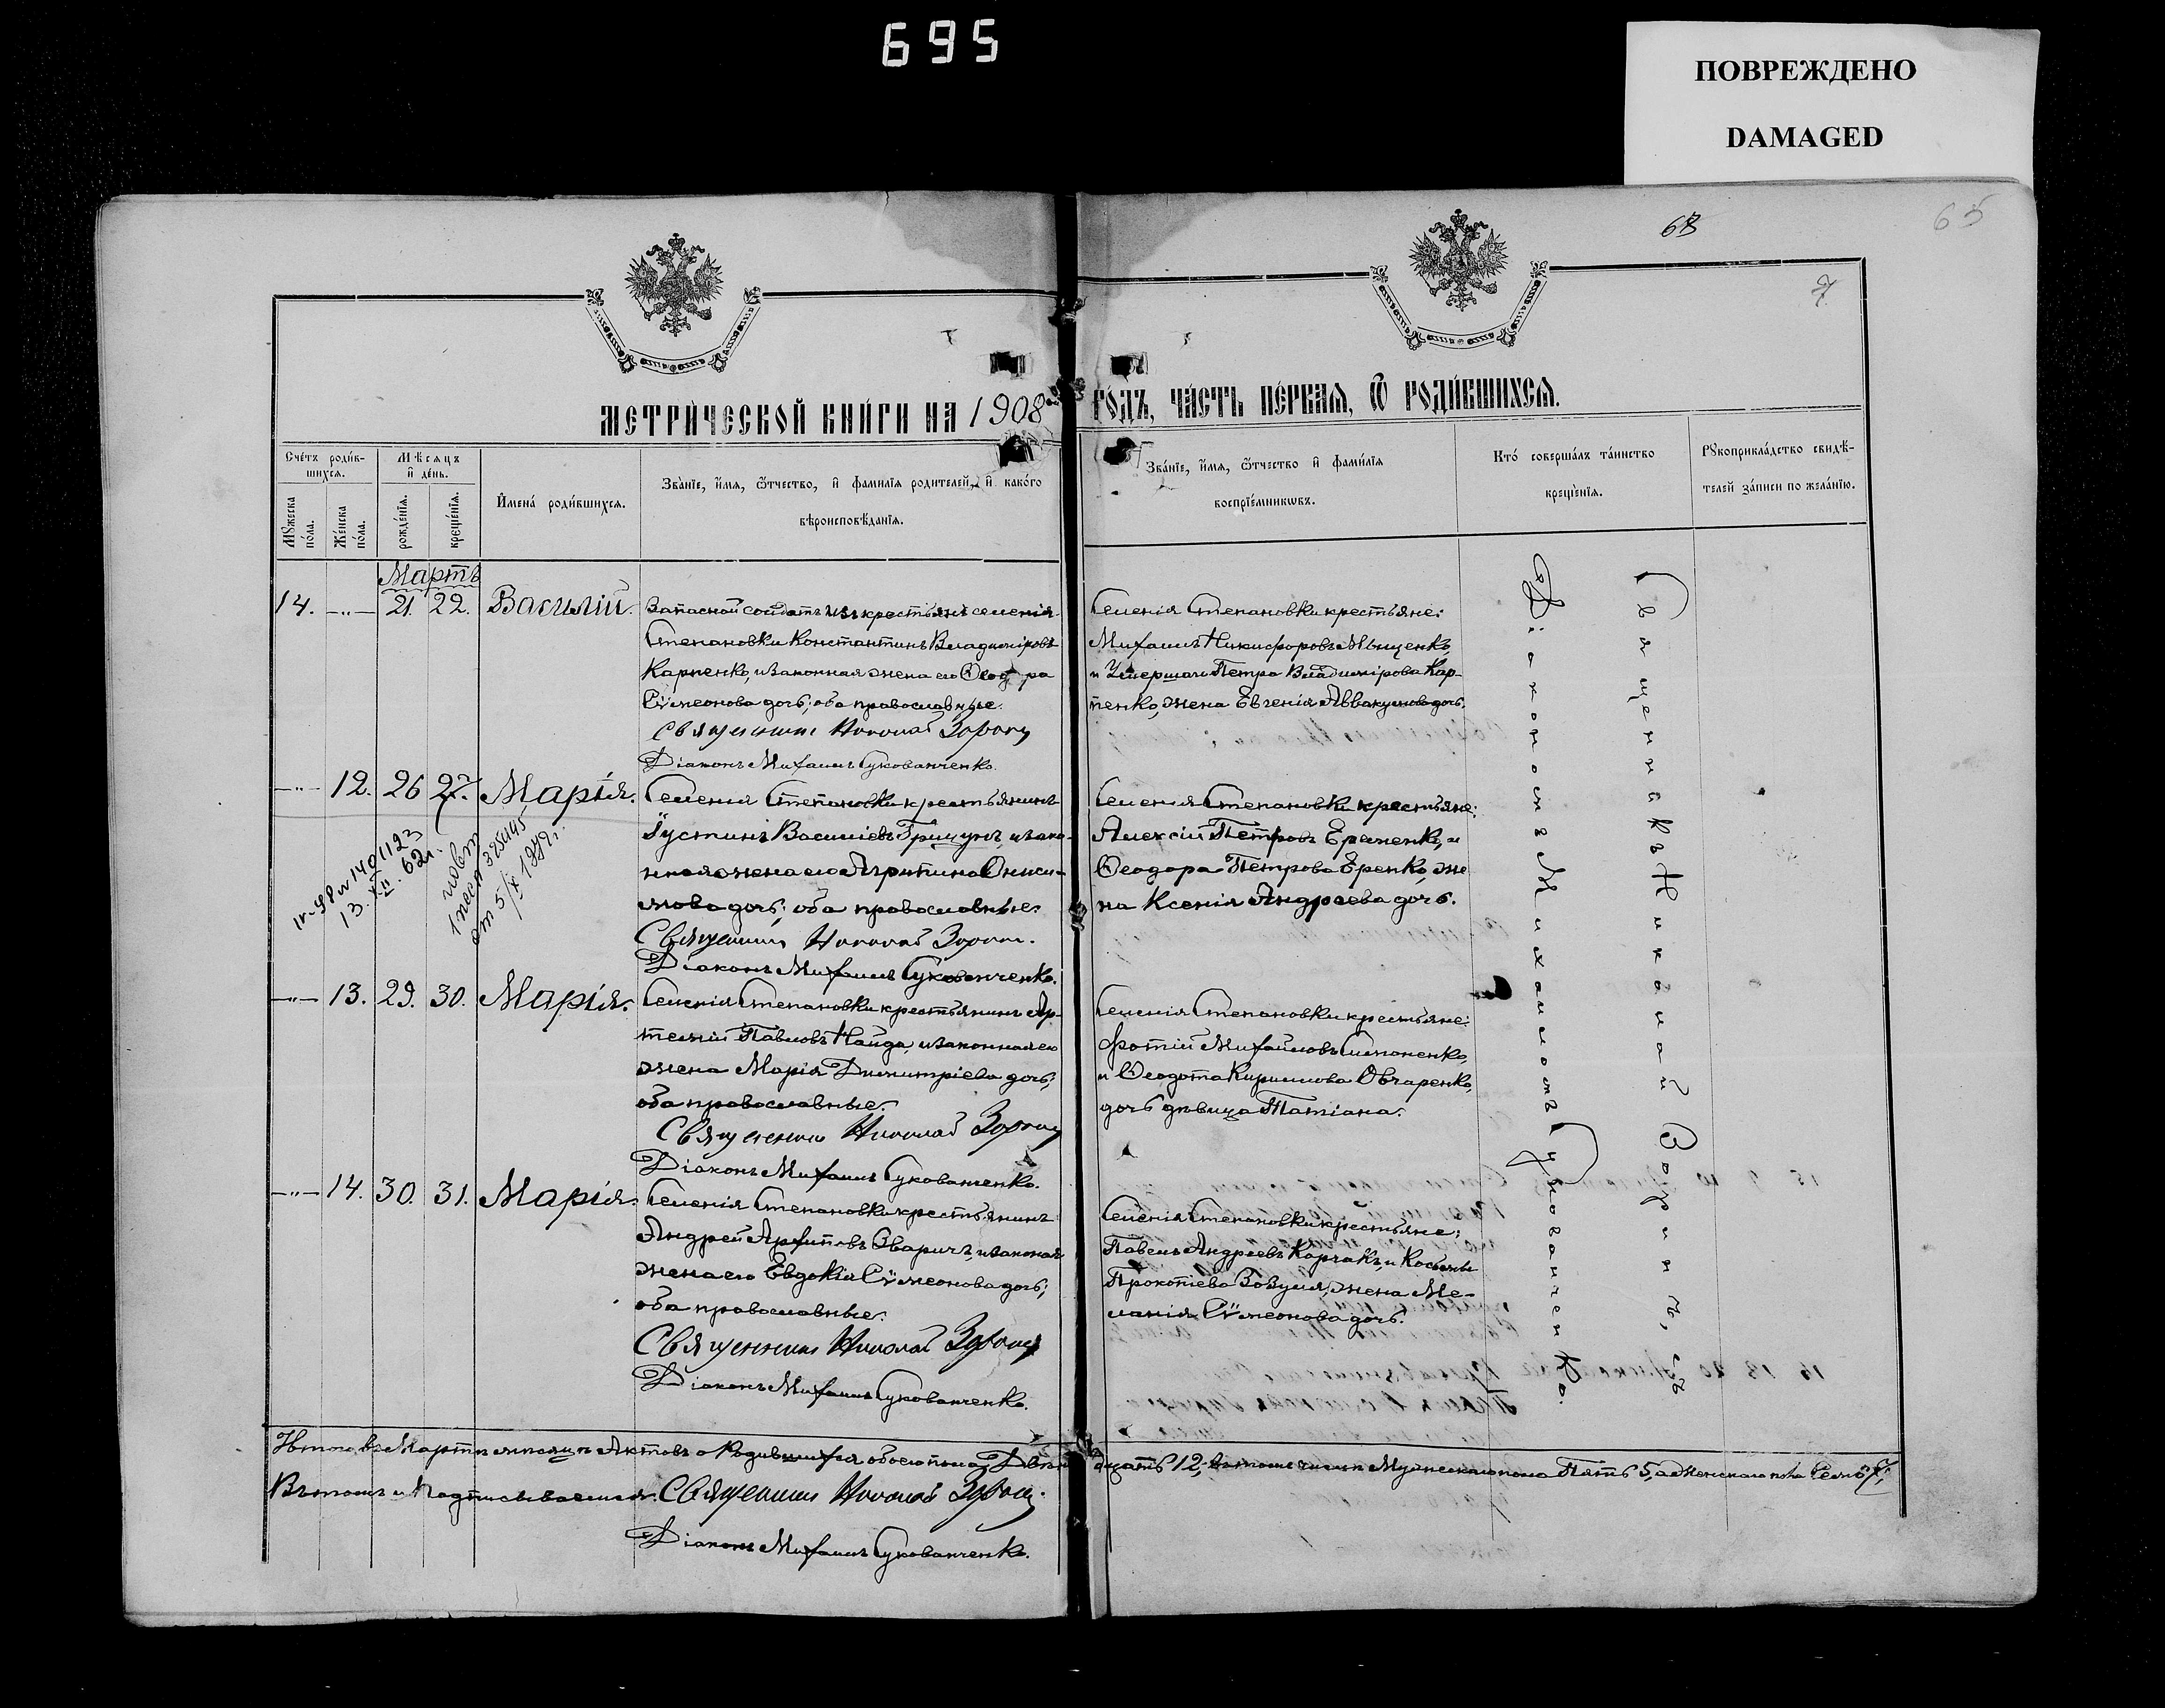 695
ПОВРЕЖДЕНО
DAMAGED
68
65
7
МЕТРИ́ЧЕСКОЙ КНИ́ГИ НА 1908
ГОДЪ, ЧА́СТЬ ПЕ́РВАѦ, Ѿ РОДИ́ВШИХСѦ.
Сче́тъ роди́в-
шихсѧ.
Мѣ́сѧцъ
и҆ де́нь.
Мꙋ́жеска по́ла.
Же́нска по́ла.
рожде́нїѧ.
креще́нїѧ.
И҆мена́ роди́вшихсѧ.
Зва́нїе, и҆́мѧ, ѻ҆́тчество, и҆ фами́лїѧ роди́телей, и҆ како́гѡ
вѣроисповѣ́данїѧ.
Зва́нїе, и҆́мѧ, ѻ҆́тчество и҆ фами́лїѧ
воспрїе́мникѡвъ.
Кто́ соверша́лъ та́инство
креще́нїѧ.
Рꙋкоприкла́дство свидѣ́-
телей за́писи по жела́нїю.
Мартъ
14. —"— 21. 22. Василій.
Запасной солдатъ изъ крестьянъ селенія
Степановки Константинъ Владиміровъ
Карпенко, и законная жена его Ѳеодора
Сѵмеонова дочь; оба православные.
Священникъ Николай
Діаконъ Михаилъ Сукованченко.
Селенія Степановки крестьяне:
Михаилъ Никифоровъ Мищенко,
и Умершаго Петра Владимірова Кар-
пенко, жена Евгенія Аввакумова дочь.
—"— 12. 26 27. Марія.
Селенія Степановки крестьянинъ
Іустинъ Василіевъ Грицунъ, и зако-
нная жена его Агрипина Ониси-
мова дочь; оба православные.
Священникъ Николай
Діаконъ Михаилъ Сукованченко.
Селенія Степановки крестьяне:
Алексій Петровъ Еременко, и
Ѳеодора Петрова Еренко, же
на Ксенія Андреева дочь.
13. XII. 62г.
—"— 13. 29. 30. Марія.
Селенія Степановки крестьянинъ Ар-
темій Павловъ Найда, и законная его
жена Марія Димитріева дочь;
оба православные.
Священникъ Николай
Діаконъ Михаилъ Сукованченко.
Селенія Степановки крестьяне:
Фотій Михайловъ Симоненко,
и Ѳеодота Кириллова Овчаренко,
дочь дѣвица Татіана.
—"— 14. 30. 31. Марія.
Селенія Степановки крестьянинъ
Андрей Архиповъ Сваричъ, и законая
жена его Евдокія Сѵмеонова дочь;
оба православные.
Священникъ Николай
Діаконъ Михаилъ Сукованченко.
Селенія Степановки крестьяне:
Павелъ Андреевъ Корчакъ, и Косьмы
Прокопіева Бовуля, жена Ме-
ланія Сѵмеонова дочь.
Священникъ Николай
Діаконъ Михаилъ Сукованченко.
Итого въ Мартѣ мѣсяцѣ Актовъ о Родившихся обоего пола, Двѣнадцать 12, въ томъ числѣ Мужескаго пола Пять 5, а Женскаго пола Семь 7;
Въ томъ и Подписываемся. Священникъ Николай
Діаконъ Михаилъ Сукованченко.